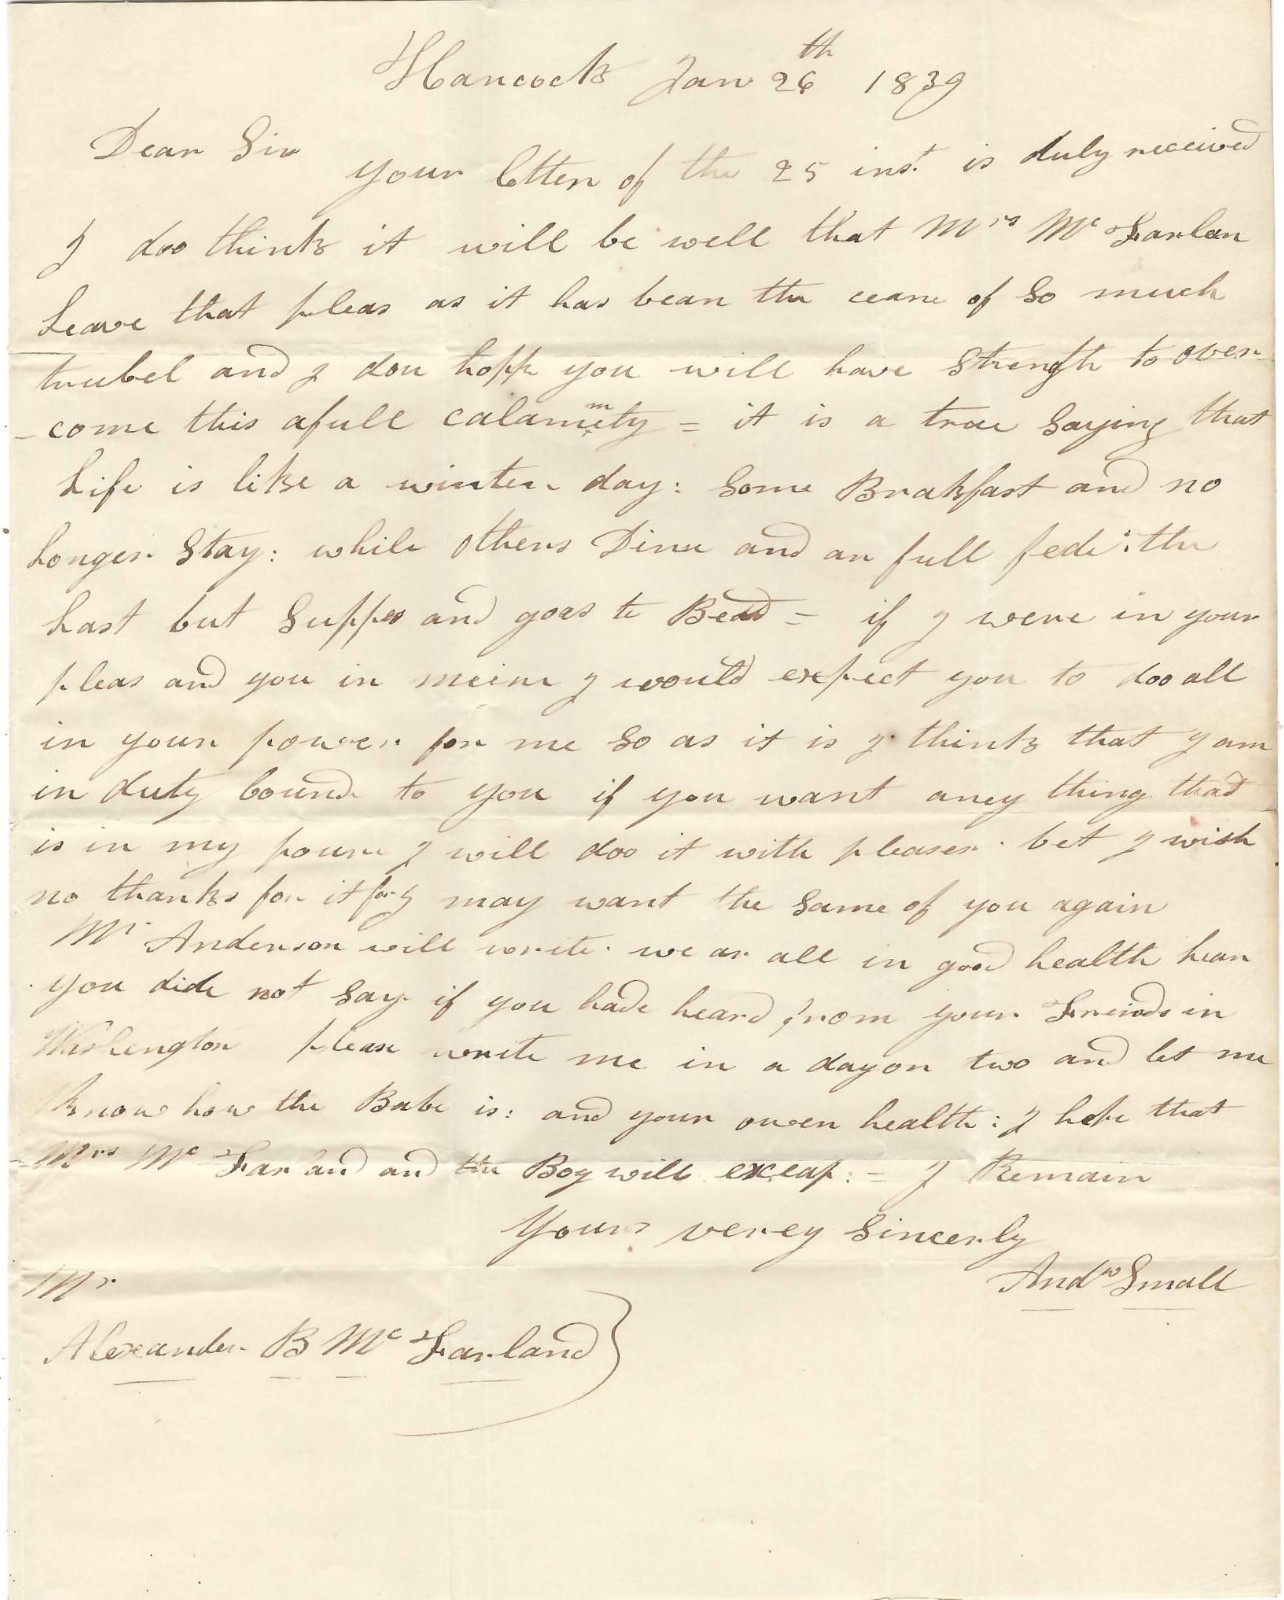 Hancock Jan 26th 1839
Dear Sir your letter of the 25 inst is duly received
I doo think it will be well that Mrs McFarlan
Leave that pleas as it has bean the ceane of so much
trubel and I dou hopp you will have strength to over-
-come this afull calamity = it is a true saying that
Life is like a winter day: some Brakfast and no
Longer stay: while others Dine and ar full fede: the
Last but supper and goas to Bead = if I were in your
pleas and you in meine I would expect you to doo all
in your power for me so as it is I think that I am
in duty bound to you if you want aney thing that
is in my poure I will doo it with pleaser. bet I wish
no thanks for it for I may want the same of you again
Mr Anderson will write. we ar all in good health hear
you dide not say if you hade heard from your Freinds in
Washengton please write me in a day or two and let me
know how the Babe is: and your owen health: I hope that
Mrs McFarland and the Boy will exceap: = I Remain
Yours verey sincerly
Andw Small
Mr
Alexander B McFarland